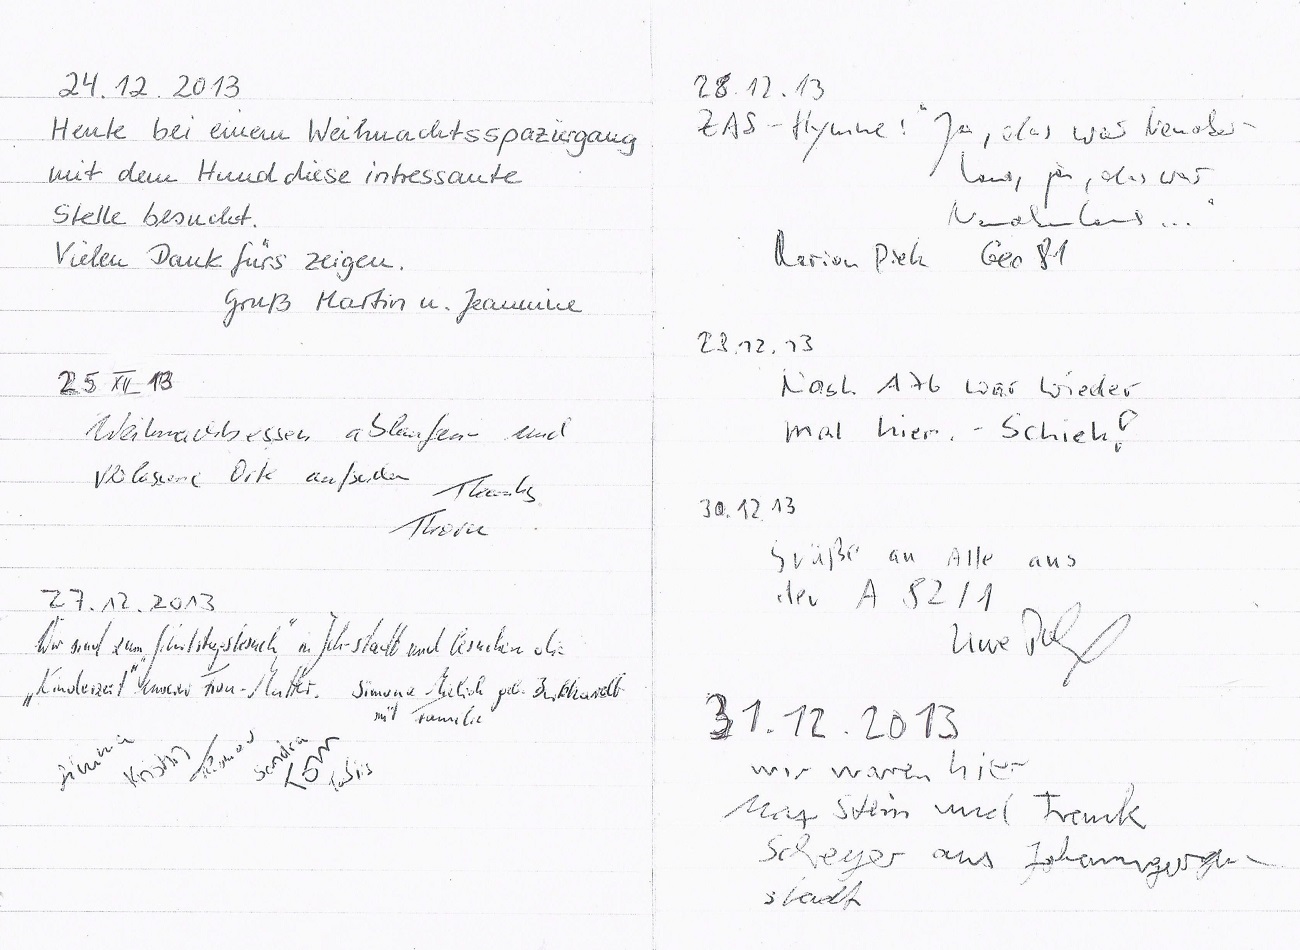 24.12.2013
Heute bei einem Weihnachtsspaziergang
mit dem Hund diese intressante
Stelle besucht.
Vielen Dank fürs zeigen.
Gruß Martin u. Jeannine
25 XII 13
Weihnachtsessen ablaufen und
Orte aufsuchen
Thanks
27.12.2013
Wir sind zum in und besuchen die
„Kinderzeit" unserer Frau-Mutter. Simone geb.
mit Familie
Kristin
Sandra
28.12.13
ZAS-Hymne! "Ja, das war Neuober-
land, ja, das war
..."
Marion Geo 81
29.12.13
Nach A76 war wieder
mal hier. - Schick!
30.12.13
Grüße an Alle aus
der A 82/1
Uwe
31.12.2013
wir waren hier
Max Stein und Frank
Scheyer aus Johanngeorgen-
stadt